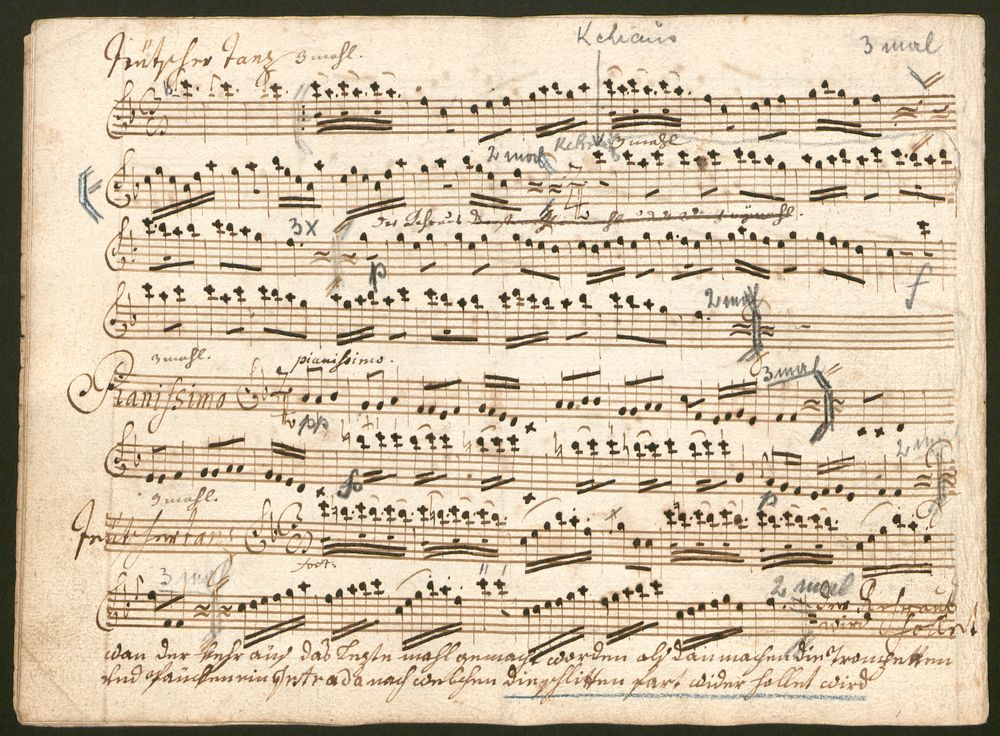 Teütscher Tanz 3 mahl.
Kehraus
3 mal
2 mal
Kehraus
3 mahl
3x
p
f
2 mal
3 mahl.
pianissimo.
Pianissimo
pp
3 mal
2 mal
fo
p
3 mahl.
Teütscher tanz
fort:
p
3 mal
2 mal
der Kehraus
wird
wan der Kehr aus das Lezte mahl gemacht worden als dan machen die Trompetten
und Paucken ein Intrada nach welchen die schlitten fart wider hollet wird